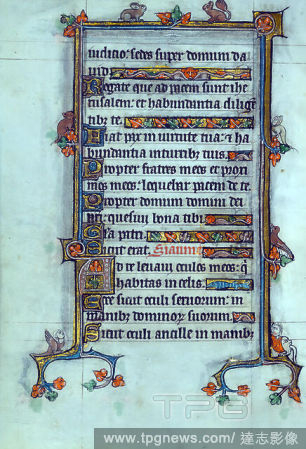 iudicio: sedes super domum da
uid.
Rogate que ad pacem sunt ihe
rusalem: et habundantia diligen
tibz te.
Fiat pax in uirtute tua: et ha
bundantia in turribz tuis.
Propter fratres meos et proxi
mos meos: loquebar pacem de te.
Propter domum domini dei
nri: quesiui bona tibi.
Gla patri
Sicut erat.
Ad te leuaui oculos meos: q
habitas in celis.
Ecce sicut oculi seruorum: in
manibz dominorz suorum.
Sicut oculi ancille in manibz
TPG
www.tpgnews.com/達志影像